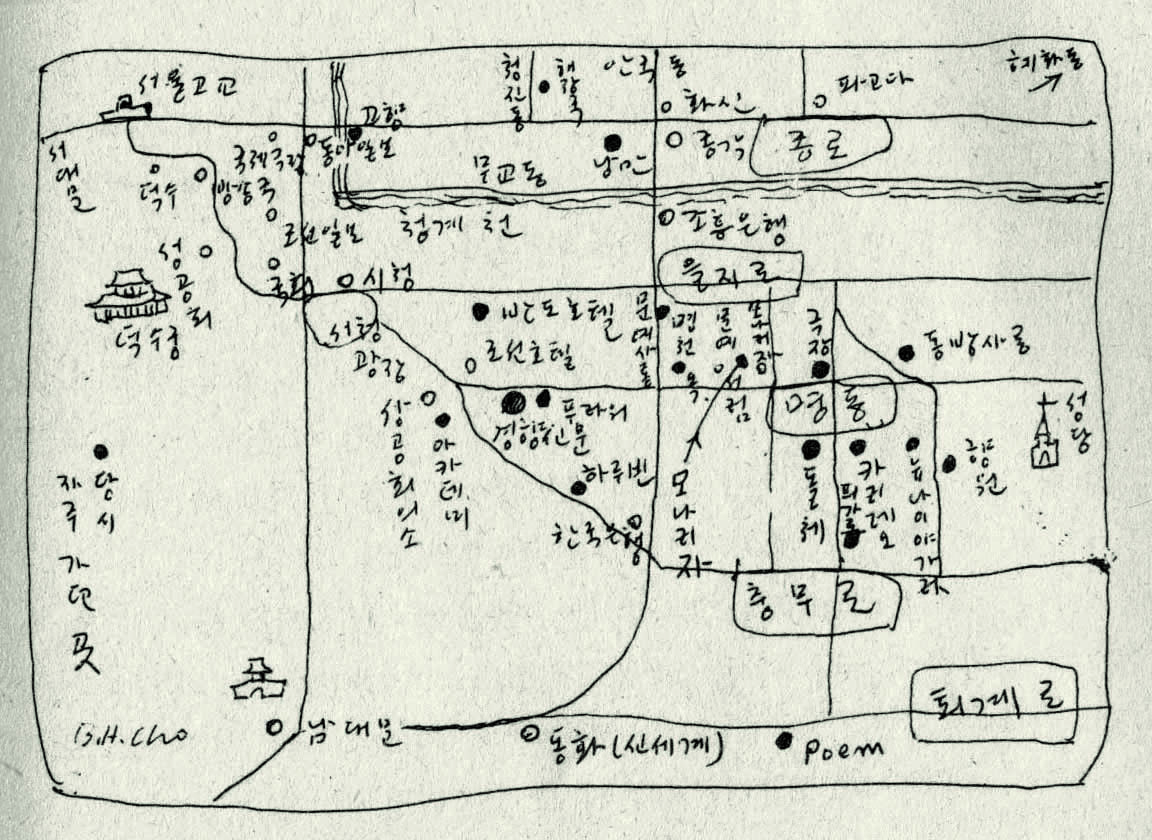 서울고교
청진동
해장국
안국동
화신
파고다
혜화동
서대문
덕수
국제극장
동아일보
무교동
낭만
종각
종로
방송국
조선일보
청계천
조흥은행
성공회
덕수궁
국회
시청
을지로
반도호텔
문예사롱
명천옥
문예서림
극장
동방사롱
시청
광장
조선호텔
상공회의소
아카데미
푸라워
경향신문
명동
성당
당시
자주 가던 곳
하루빈
한국은행
모나리자
돌체
카리레오
휘가로
뉴나이아가라
향원
충무로
퇴계로
B.H.Cho
남대문
동화(신세계)
Poem